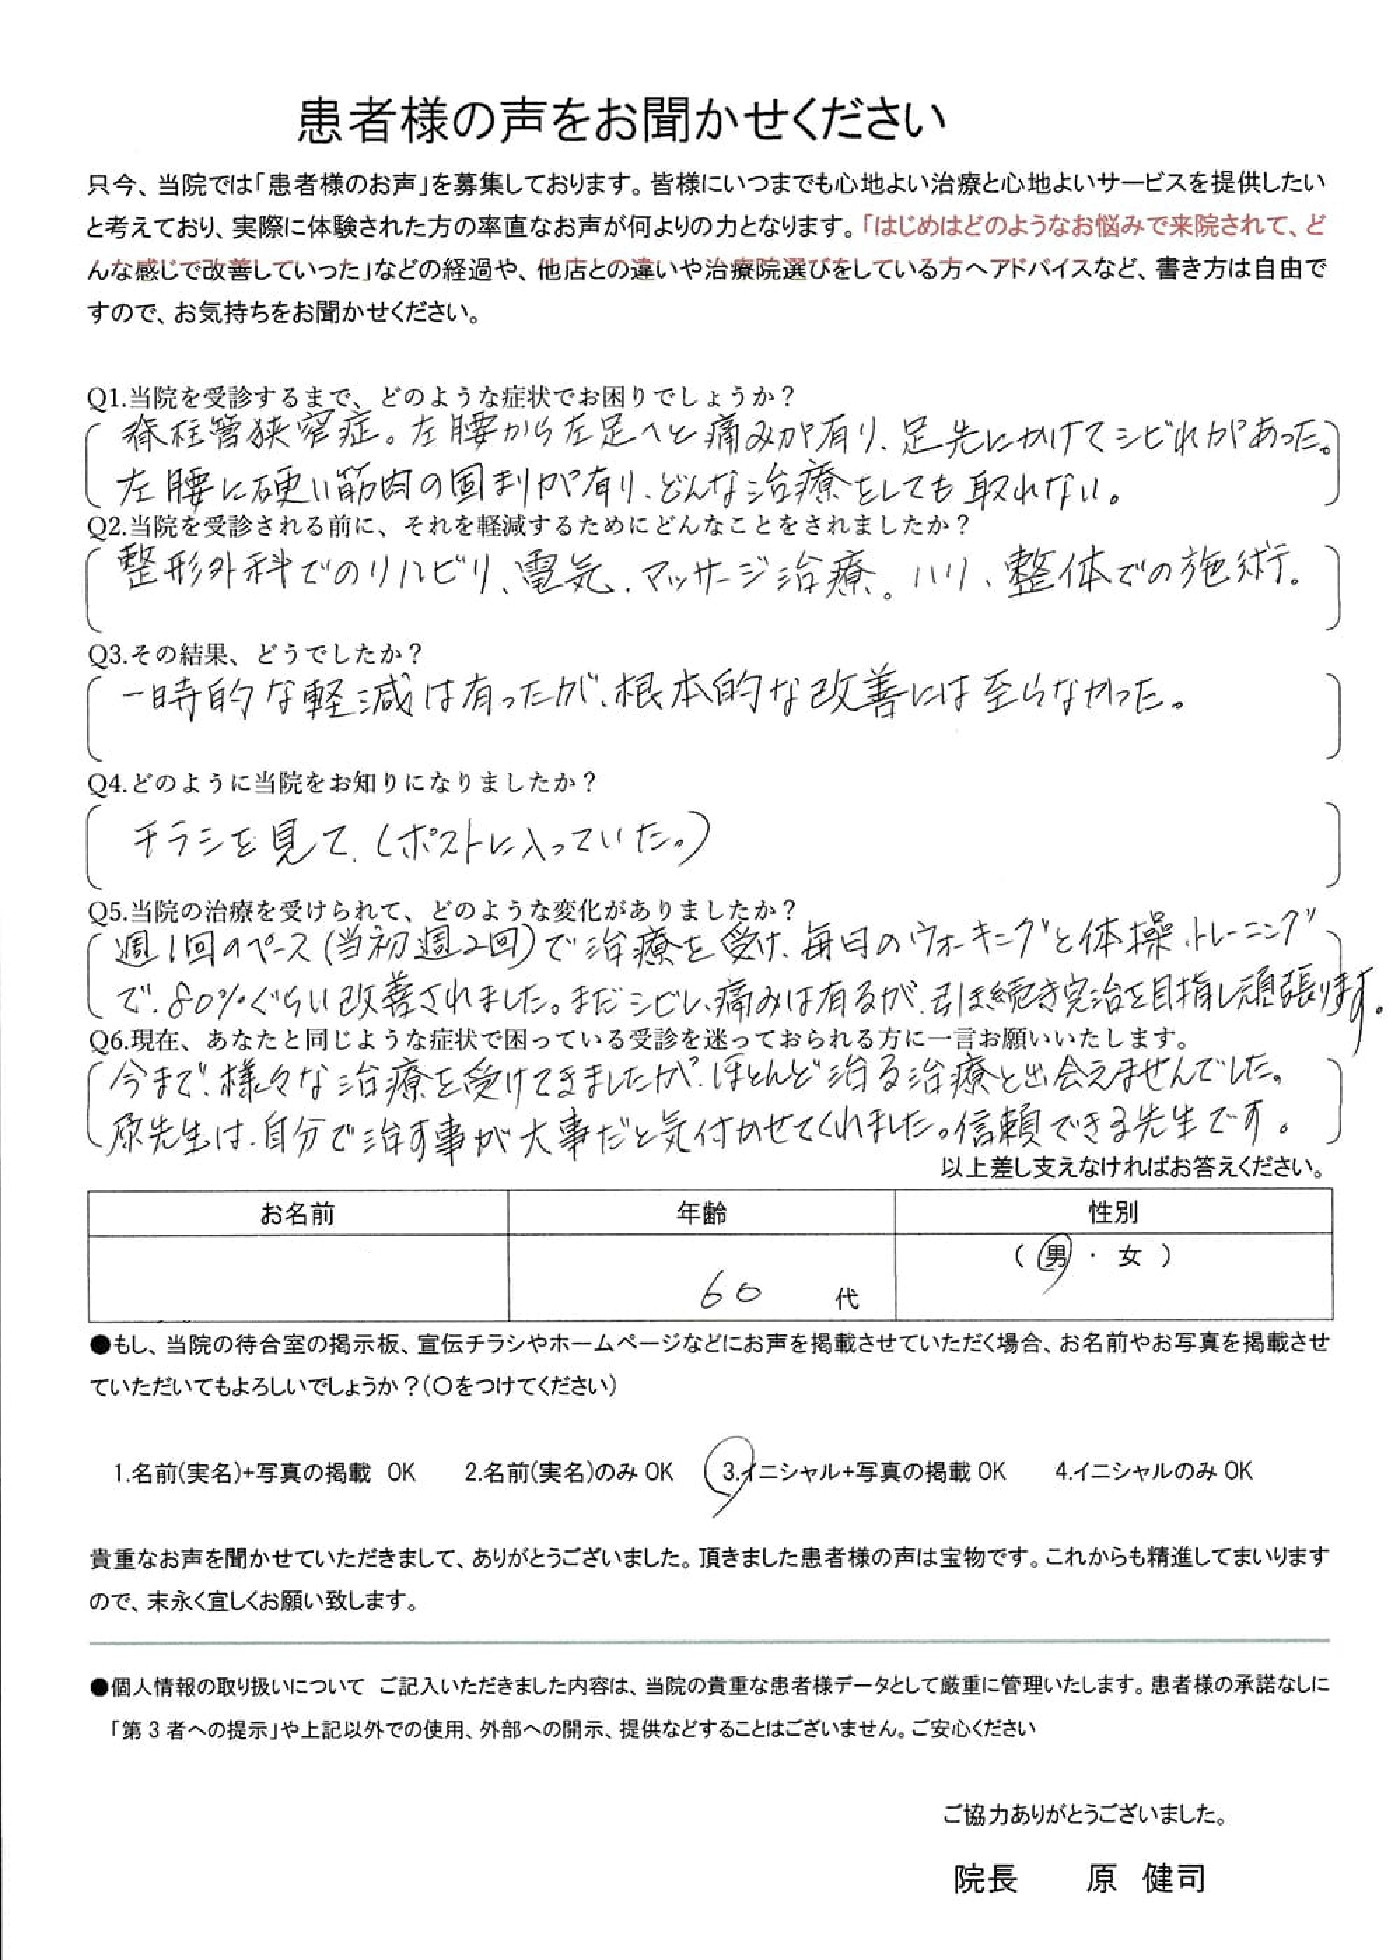 患者様の声をお聞かせください
只今、当院では「患者様のお声」を募集しております。皆様にいつまでも心地よい治療と心地よいサービスを提供したい
と考えており、実際に体験された方の率直なお声が何よりの力となります。「はじめはどのようなお悩みで来院されて、ど
んな感じで改善していった」などの経過や、他店との違いや治療院選びをしている方へアドバイスなど、書き方は自由で
すので、お気持ちをお聞かせください。
Q1.当院を受診するまで、どのような症状でお困りでしょうか？
脊柱管狭窄症。左腰から左足へと痛みが有り、足先にかけてシビれがあった。
左腰に硬い筋肉の固まりが有り、どんな治療をしても取れない。
Q2.当院を受診される前に、それを軽減するためにどんなことをされましたか？
整形外科でのリハビリ、電気、マッサージ治療。ハリ、整体での施術。
Q3.その結果、どうでしたか？
一時的な軽減は有ったが、根本的な改善には至らなかった。
Q4.どのように当院をお知りになりましたか？
チラシを見て、（ポストに入っていた。）
Q5.当院の治療を受けられて、どのような変化がありましたか？
週1回のペース（当初週2回）で治療を受け、毎日のウォーキングと体操、トレーニング
で、80%ぐらい改善されました。まだシビレ、痛みは有るが、引き続き完治を目指し頑張ります。
Q6.現在、あなたと同じような症状で困っている受診を迷っておられる方に一言お願いいたします。
今まで、様々な治療を受けてきましたが、ほとんど治る治療と出会えませんでした。
原先生は、自分で治す事が大事だと気付かせてくれました。信頼できる先生です。
以上差し支えなければお答えください。
お名前 年齢 性別
（ 男 ・ 女 ）
60 代
●もし、当院の待合室の掲示板、宣伝チラシやホームページなどにお声を掲載させていただく場合、お名前やお写真を掲載させ
ていただいてもよろしいでしょうか？（〇をつけてください）
1.名前(実名)+写真の掲載 OK 2.名前(実名)のみ OK 3.イニシャル+写真の掲載 OK 4.イニシャルのみ OK
貴重なお声を聞かせていただきまして、ありがとうございました。頂きました患者様の声は宝物です。これからも精進してまいります
ので、末永く宜しくお願い致します。
●個人情報の取り扱いについて ご記入いただきました内容は、当院の貴重な患者様データとして厳重に管理いたします。患者様の承諾なしに
「第3者への提示」や上記以外での使用、外部への開示、提供などすることはございません。ご安心ください
ご協力ありがとうございました。
院長 原 健司